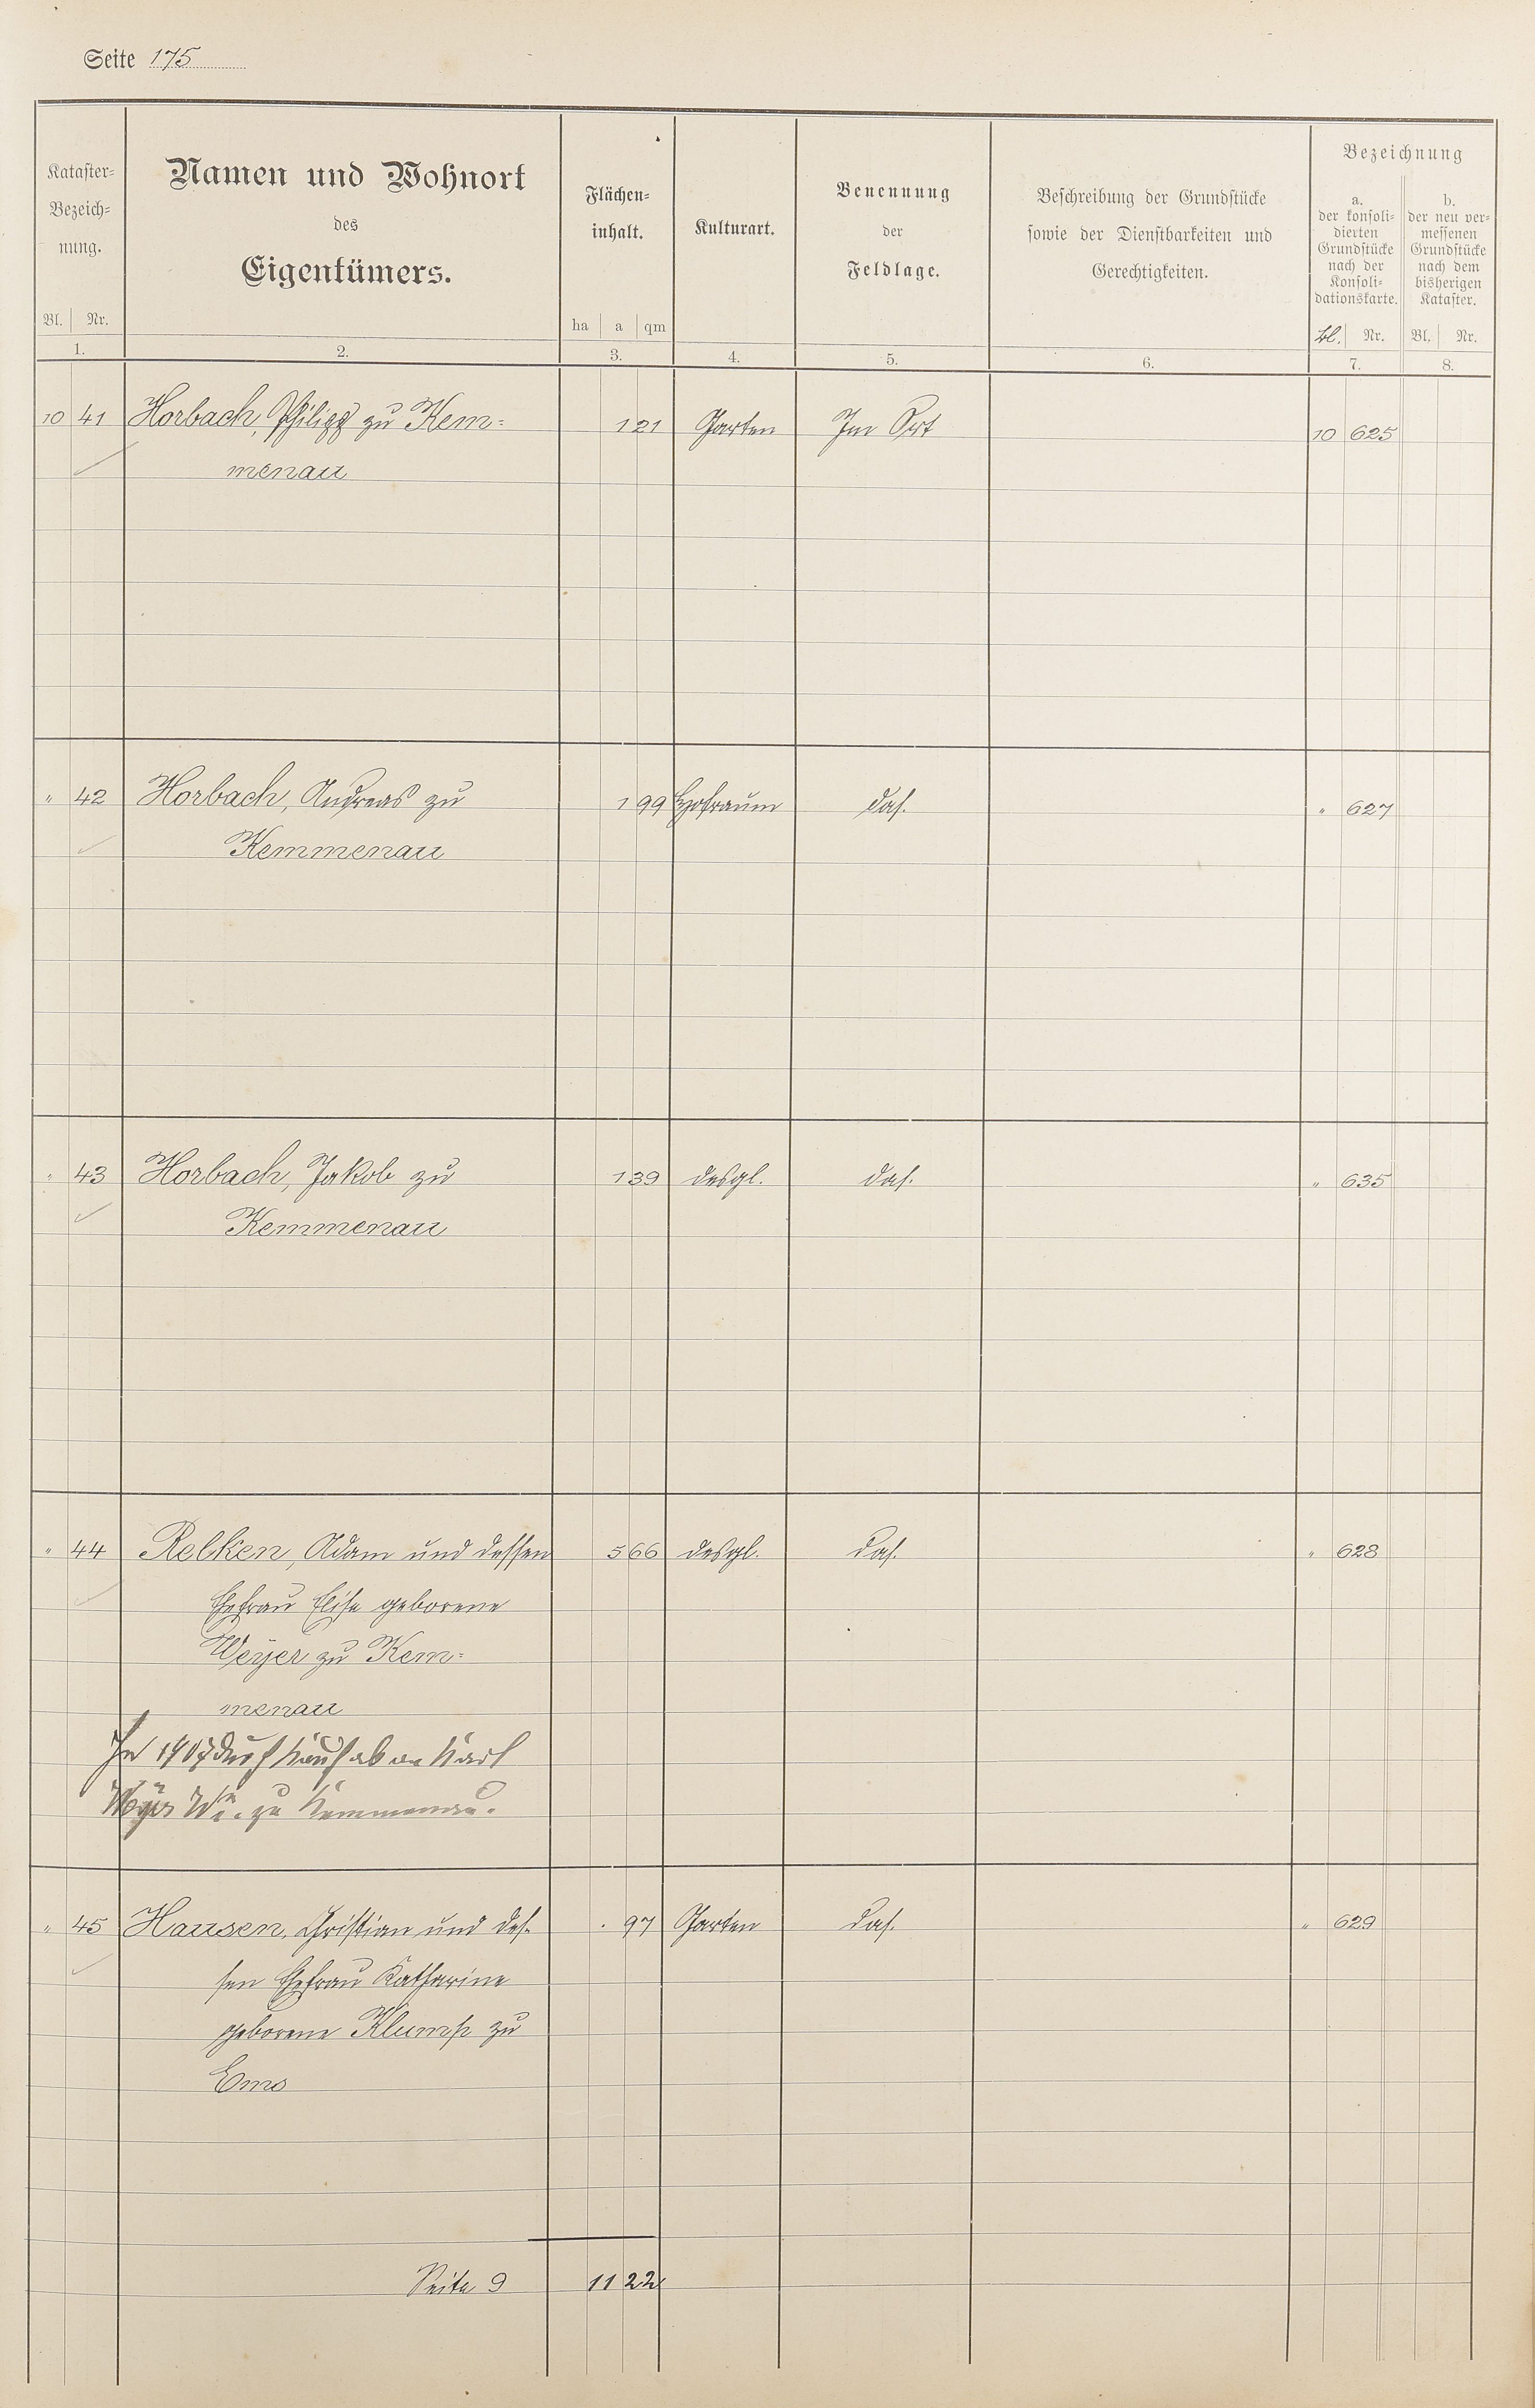 Seite 175
Kataster-
Bezeich-
nung.
Bl. Nr.
1.
Namen und Wohnort
des
Eigentümers.
2.
Flächen-
inhalt.
ha a qm
3.
Kulturart.
4.
Benennung
der
Feldlage.
5.
Beschreibung der Grundstücke
sowie der Dienstbarkeiten und
Gerechtigkeiten.
6.
Bezeichnung
a.
der konsoli-
dierten
Grundstücke
nach der
Konsoli-
dationskarte.
Bl. Nr.
7.
b.
der neu ver-
messenen
Grundstücke
nach dem
bisherigen
Kataster.
Bl. Nr.
8.
10 41 Horbach, Philipp zu Kem- 1 21 Garten Im Ort 10 625
menau
" 42 Horbach, Andreas zu 1 99 Hofraum das. " 627
Kemmenau
" 43 Horbach, Jakob zu 1 39 desgl. das. " 635
Kemmenau
" 44 Relken, Adam und dessen 5 66 desgl. das. " 628
Ehefrau Elise geborene
Weyer zu Kem-
menau
In 1907 durch Kauf ab an Karl
zu Kemmenau.
" 45 Hausen, Christian und des- . 97 Garten das. " 629
sen Ehefrau Katharine
geborene Klump zu
Ems
Seite 9 11 22